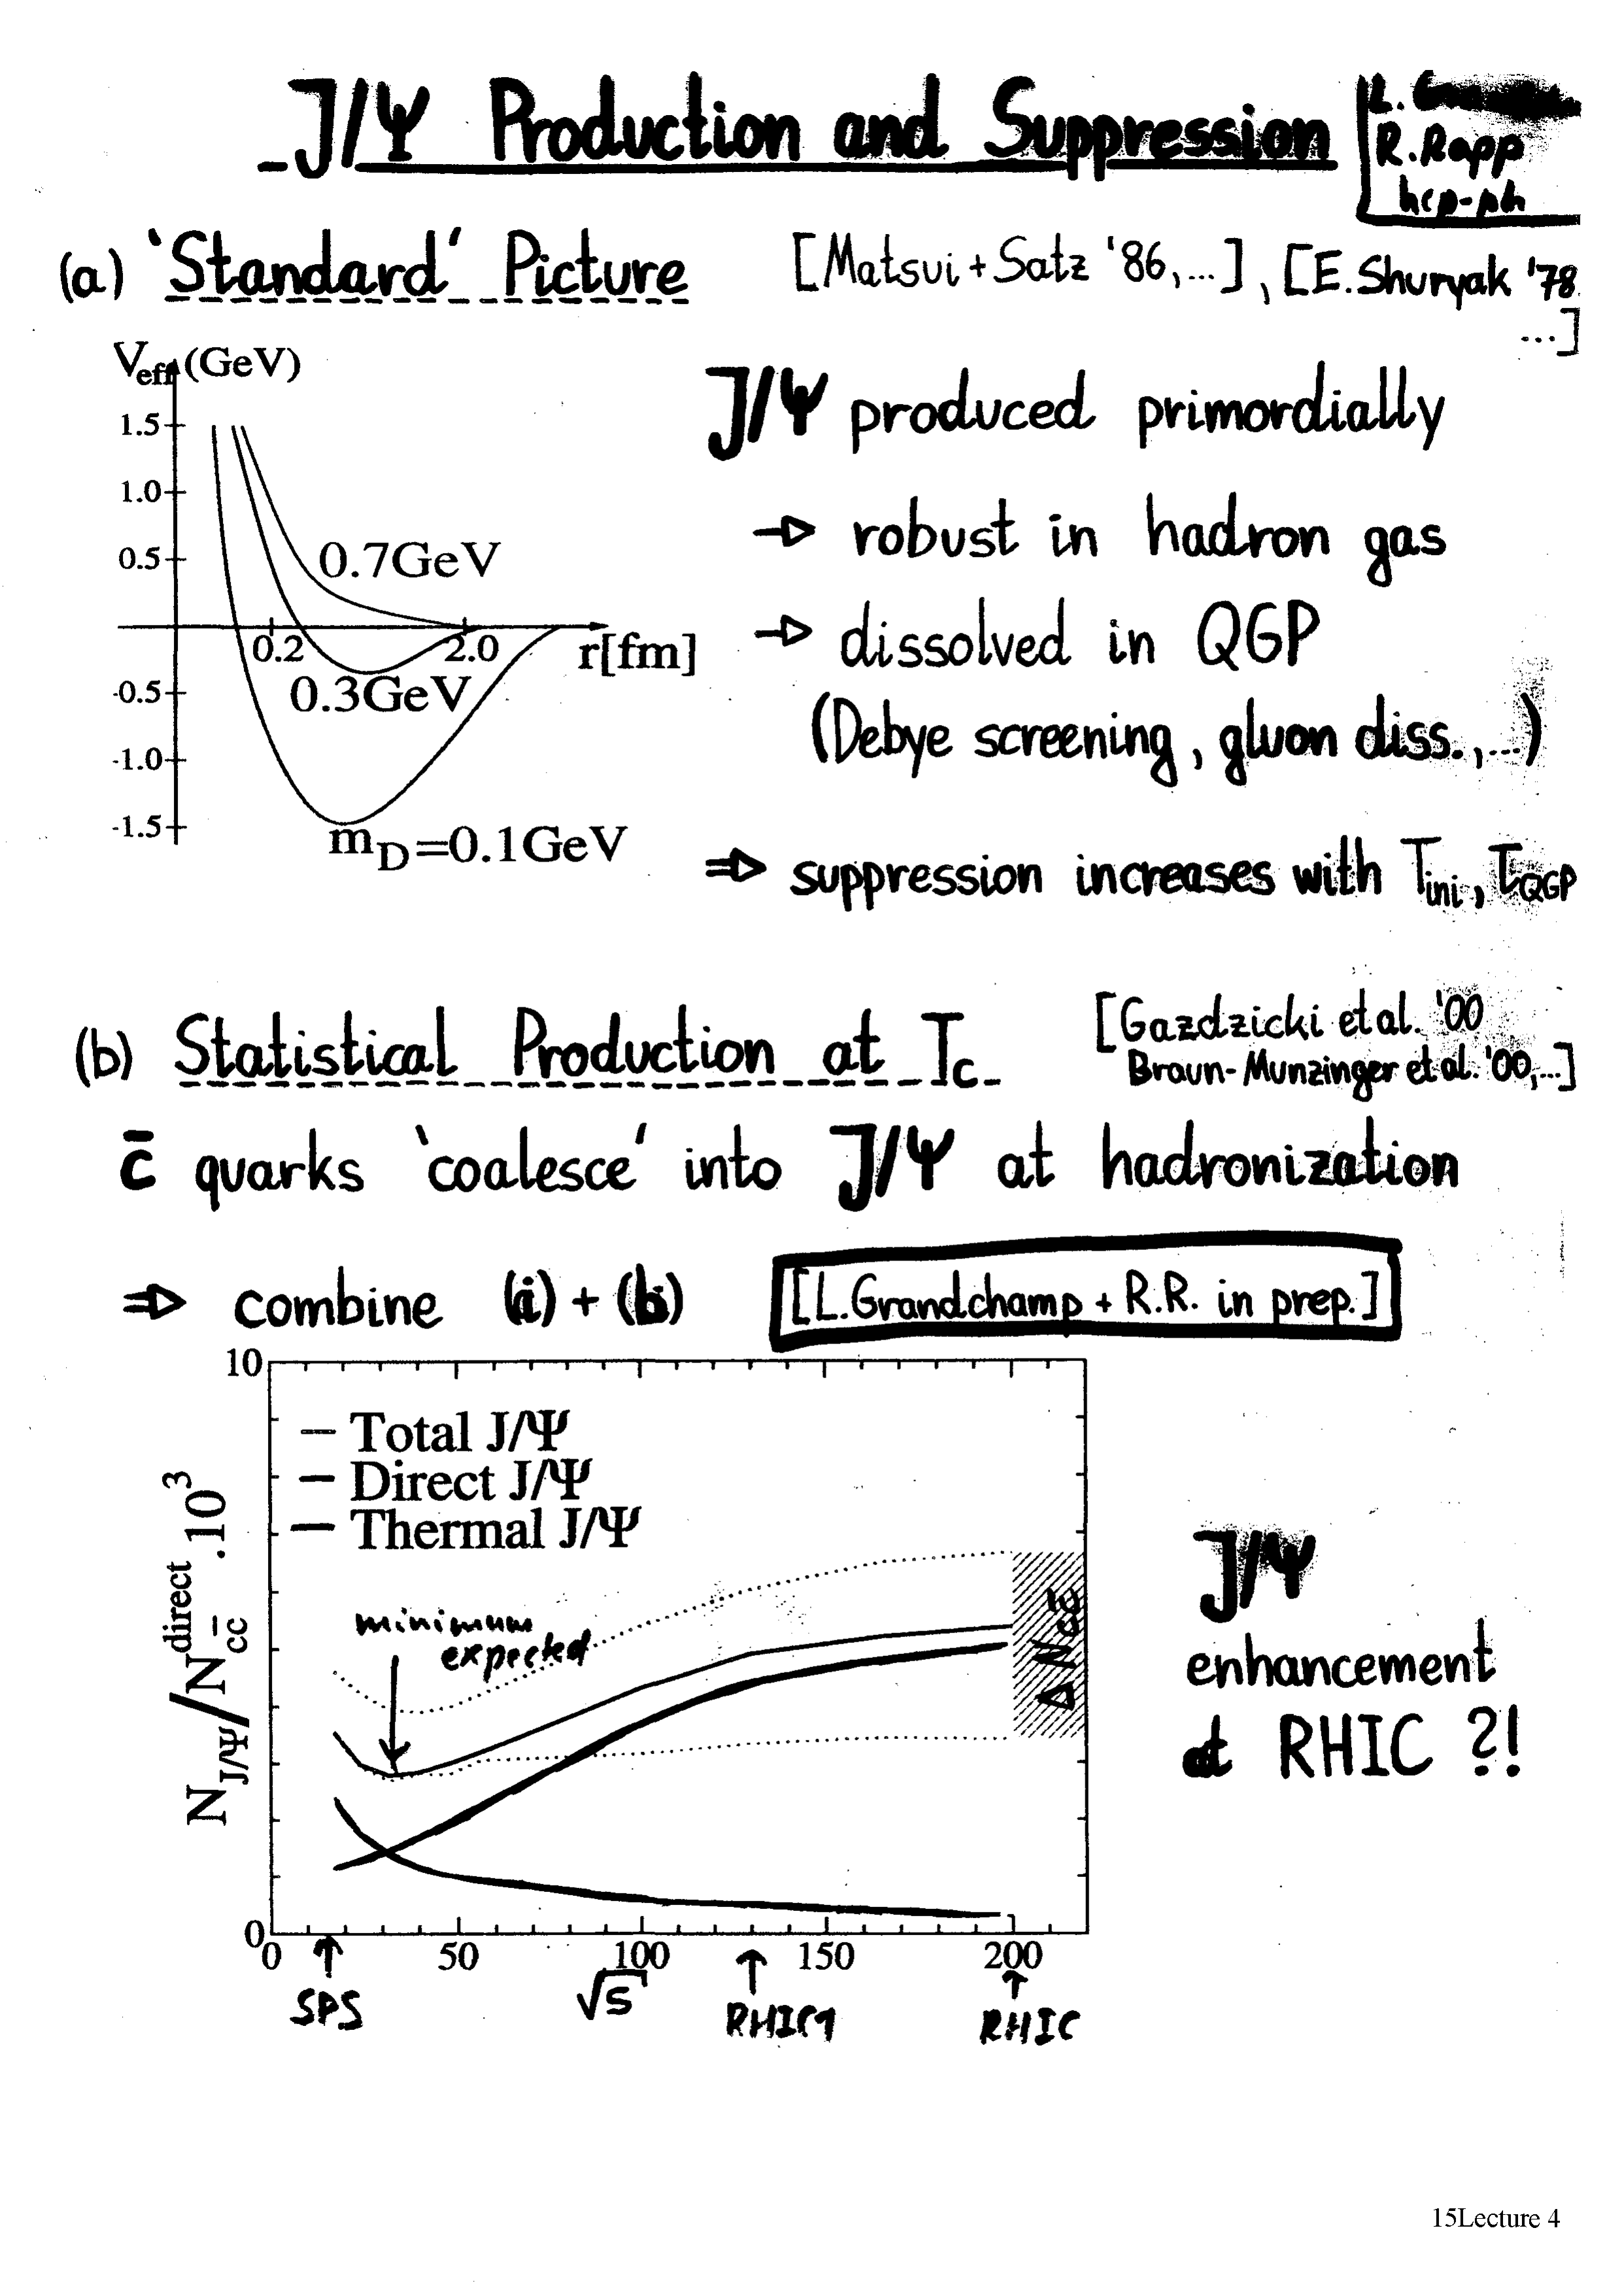 J/Ψ Production and Suppression
L.
R. Rapp
hep-ph
(a) 'Standard' Picture [Matsui + Satz '86,...], [E. Shuryak '78
...]
V_eff (GeV)
1.5
1.0
0.5
-0.5
-1.0
-1.5
0.7GeV
0.2 2.0 r[fm]
0.3GeV
m_D=0.1GeV
J/Ψ produced primordially
→ robust in hadron gas
→ dissolved in QGP
(Debye screening, gluon diss.,...)
⇒ suppression increases with T_ini, τ_QGP
(b) Statistical Production at T_c [Gazdzicki et al. '00
Braun-Munzinger et al. '00,...]
c̄ quarks 'coalesce' into J/Ψ at hadronization
⇒ combine (a) + (b) [L. Grandchamp + R.R. in prep.]
10
Total J/Ψ
Direct J/Ψ
Thermal J/Ψ
N_J/Ψ/N_cc̄^direct .10^3
minimum
expected
Δ N_cc̄
0
0 50 100 150 200
SPS √s RHIC1 RHIC
J/Ψ
enhancement
at RHIC ?!
15Lecture 4